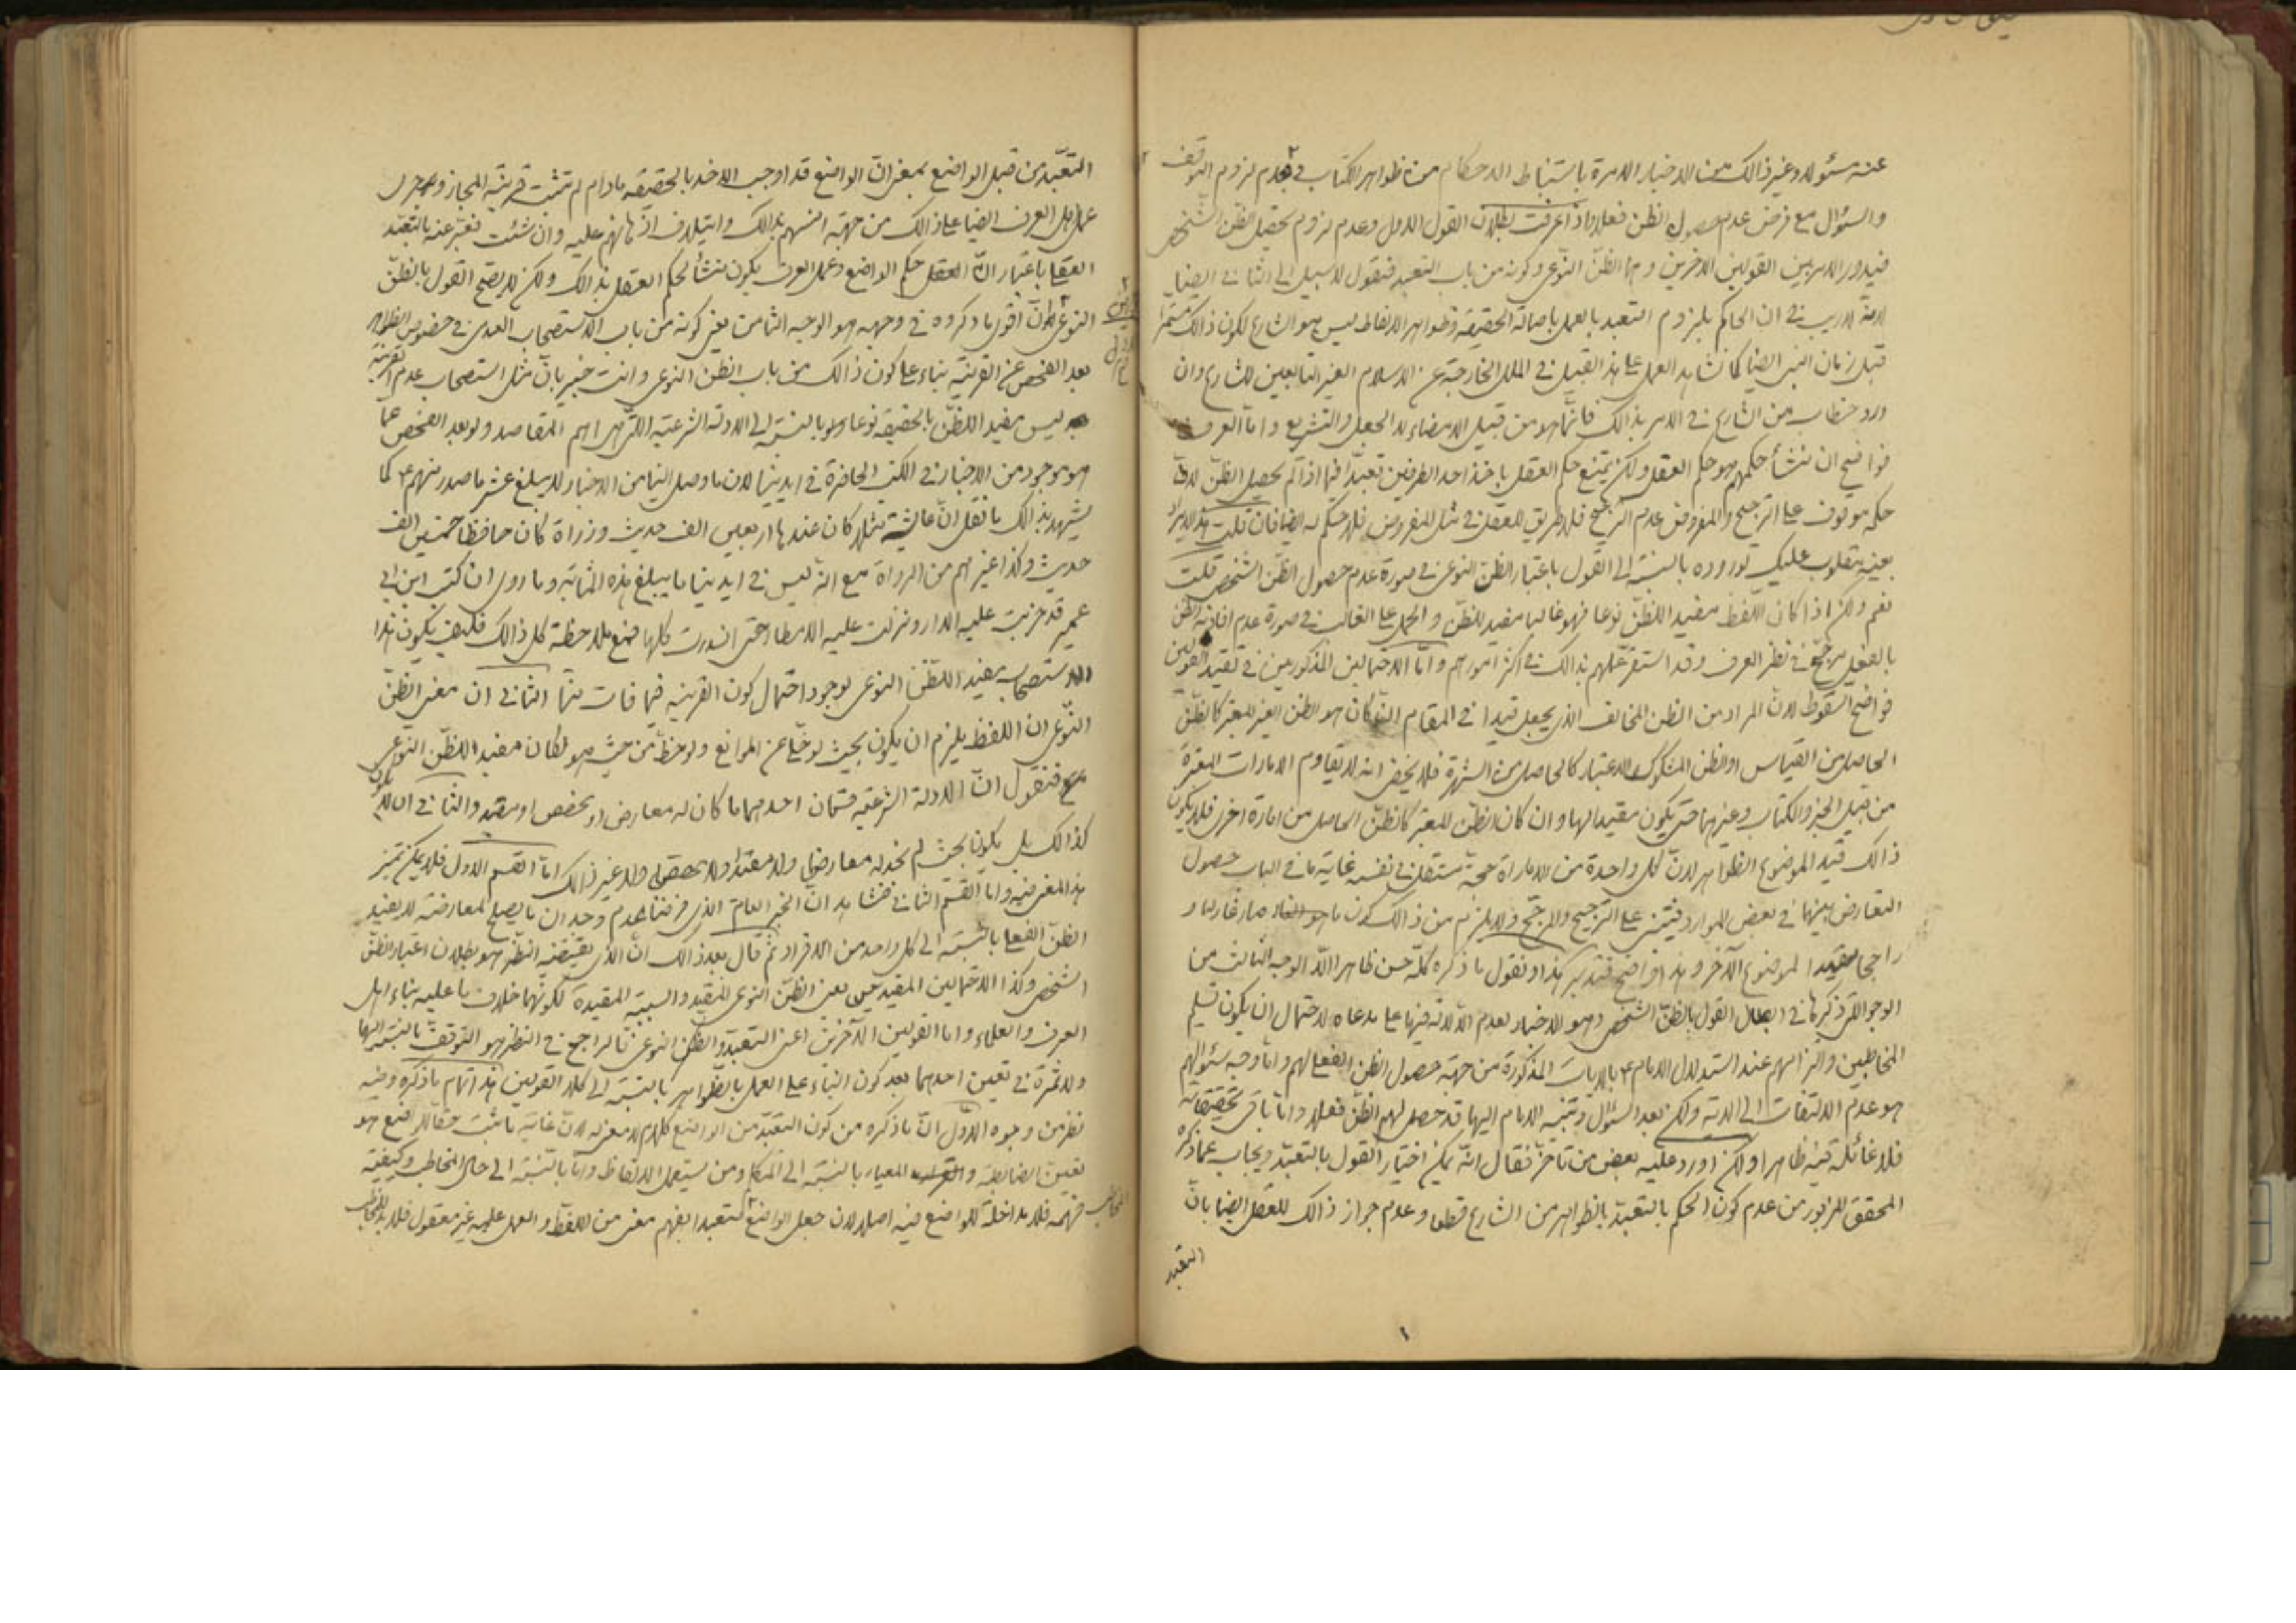 عنه مسئولا وغير ذالك من الاخبار الامرة باستنباط الاحكام من ظواهر الكتاب في عدم لزوم التوقف
والسؤال مع فرض عدم حصول الظن فعلا واذا عرفت بطلان القول الاول وعدم لزوم تحصيل الظن الشخصى
فيدور الامر بين القولين الاخرين وهما الظن النوعى وكونه من باب التعبد فنقول لا سبيل الى الثانى ايضا
لانه لا ريب في ان الحاكم بلزوم التعبد بالعمل باصالة الحقيقة وظواهر الالفاظ ليس هو الشارع لكون ذالك مستمرا
قبل زمان النبى ايضا كما نشاهد العمل على هذا القبيل في الملل الخارجة عن الاسلام الغير التابعين للشارع وان
ورد خطاب من الشارع في الامر بذالك فانما هو من قبيل الامضاء لا الجعل والتشريع واما العرف
فواضح ان منشأ حكمهم هو حكم العقل ولكن يمتنع حكم العقل باخذ احد الطرفين تعبدا فيما اذا لم يحصل الظن لان
حكمه موقوف على الترجيح والمفروض عدم الترجيح فلا طريق للعقل في مثل المفروض فلا حكم له ايضا فان قلت هذا الايراد
بعينه ينقلب عليك لوروده بالنسبة الى القول باعتبار الظن النوعى في صورة عدم حصول الظن الشخصى قلت
نعم ولكن اذا كان اللفظ مفيدا للظن نوعا فهو غالبا مفيد للظن والحمل على الغالب في صورة عدم افادته الظن
بالفعل مرجح في نظر العرف وقد استقر عملهم بذالك في اكثر امورهم واما الاحتمالين المذكورين في تقييد القولين
فواضح السقوط لان المراد من الظن المخالف الذى يجعل قيدا في المقام ان كان هو الظن الغير المعتبر كالظن
الحاصل من القياس او الظن المشكوك الاعتبار كالحاصل من الشهرة فلا يخفى انه لا يقاوم الامارات المعتبرة
من قبيل الخبر والكتاب وغيرهما حتى يكون مقيدا لها وان كان الظن المعتبر كالظن الحاصل من امارة اخرى فلا يكون
ذالك قيد الموضوع الظواهر لان كل واحدة من الاماراة حجة مستقل في نفسه غاية ما في الباب حصول
التعارض بينهما في بعض الموارد فيبتنى على الترجيح والمرجح ولا يلزم من ذالك كون ما هو صار غالبا و
راجحا مقيدا لموضوع الاخر وهذا واضح فتدبر هكذا ونقول ما ذكره كله حسن ظاهرا الا الوجه الثالث من
الوجوه التى ذكرها في ابطال القول بالظن الشخصى وهو الاخبار لعدم الدلالة فيها على مدعاه لاحتمال ان يكون تسليم
المخاطبين والزامهم عند استدلال الامام ع بالايات المذكورة من جهة حصول الظن الفعلى لهم واما وجه سئوالهم
هو عدم الالتفات الى الاية ولكن بعد السئوال وتنبه الامام اليها قد حصل لهم الظن فعلا واما باقى تحقيقاته
فلا غائلة فيه ظاهرا ولكن اورد عليه بعض من تاخر فقال انه يمكن اختيار القول بالتعبد ويجاب عما ذكره
المحقق المزبور من عدم كون الحكم بالتعبد بالظواهر من الشارع قطعا وعدم جواز ذالك للعقل ايضا بان
التعبد
التعبد من قبل الواضع بمعنى ان الواضع قد اوجب الاخذ بالحقيقة مادام لم تثبت قرينة المجاز وجرى
عمل اهل العرف ايضا على ذالك من جهة انسهم بذالك وايتلاف اذهانهم عليه وان شئت نعبر عنه بالتعبد
العقلى باعتبار ان العقل حكم الواضع وعمل العرف يكون منشأ لحكم العقل بذالك ولكن لا يصح القول بالظن
النوعى لان اقوى ما ذكروه في وجهه هو الوجه الثامن يعنى كونه من باب الاستصحاب العدمى في خصوص الظواهر
بعد الفحص عن القرينة بناء على كون ذالك من باب الظن النوعى وانت خبير بان مثل استصحاب عدم القرينة
ليس مفيدا للظن بالحقيقة نوعا ولو بالنسبة الى الادلة الشرعية التى هى اهم المقاصد ولو بعد الفحص عما
هو موجود من الاخبار في الكتب الحاضرة في ايدينا لان ما وصل الينا من الاخبار لا يبلغ عشر ما صدر منهم ع كما
يشهد بذالك ما نقل ان عايشة مثلا كان عندها اربعين الف حديث وزراة كان حافظا خمسين الف
حديث وكذا غيرهم من الرواة مع انه ليس في ايدينا ما يبلغ هذه المثابة وما روى ان كتب ابن ابى
عمير قد خربت عليه الدار ونزلت عليه الامطار حتى اندرست كلها فمع ملاحظة كل ذالك فكيف يكون هذا
الاستصحاب مفيدا للظن النوعى لوجود احتمال كون القرينة فيما فات منا الثانى ان معنى الظن
النوعى ان اللفظ يلزم ان يكون بحيث لو خلى عن الموانع ولوحظ من حيث هو لكان مفيدا للظن النوعى
فنقول ان الادلة الشرعية قسمان احدهما ما كان له معارض او مخصص او مقيد والثانى ان لا يكون
كذالك بل يكون بحيث لم نجد له معارضا ولا مقيدا ولا مخصصا ولا غير ذالك اما القسم الاول فلا يمكن تميز
هذا المعنى فيه واما القسم الثانى فنشاهد ان الخبر العام الذى فرضنا عدم وجدان ما يصلح لمعارضته لا يفيد
الظن الفعلى بالنسبة الى كل واحد من الافراد ثم قال بعد ذالك ان الذى يقتضيه النظر هو بطلان اعتبار الظن
الشخصى وكذا الاحتمالين المقيدين يعنى الظن النوعى المقيد والسببية المقيدة لكونهما خلاف ما عليه بناء اهل
العرف والعلماء واما القولين الآخرين اعنى التعبد والظن النوعى فالراجح في النظر هو التوقف بالنسبة اليها
ولا ثمرة في تعين احدهما بعد كون البناء على العمل بالظواهر بالنسبة الى كلا القولين هذا تمام ما ذكره وفيه
نظر من وجوه الاول ان ما ذكره من كون التعبد من الواضع كلام لا معنى له لان غاية ما يثبت حقا للواضع هو
تعيين الضابطة و المعيار بالنسبة الى المتكلم ومن يستعمل الالفاظ واما بالنسبة الى حال المخاطب وكيفية
فهمه فلا مداخلة للواضع فيه اصلا لان جعل الواضع لتعبد الفهم معنى من اللفظ والعمل عليه غير معقول فلا بد للمخاطب